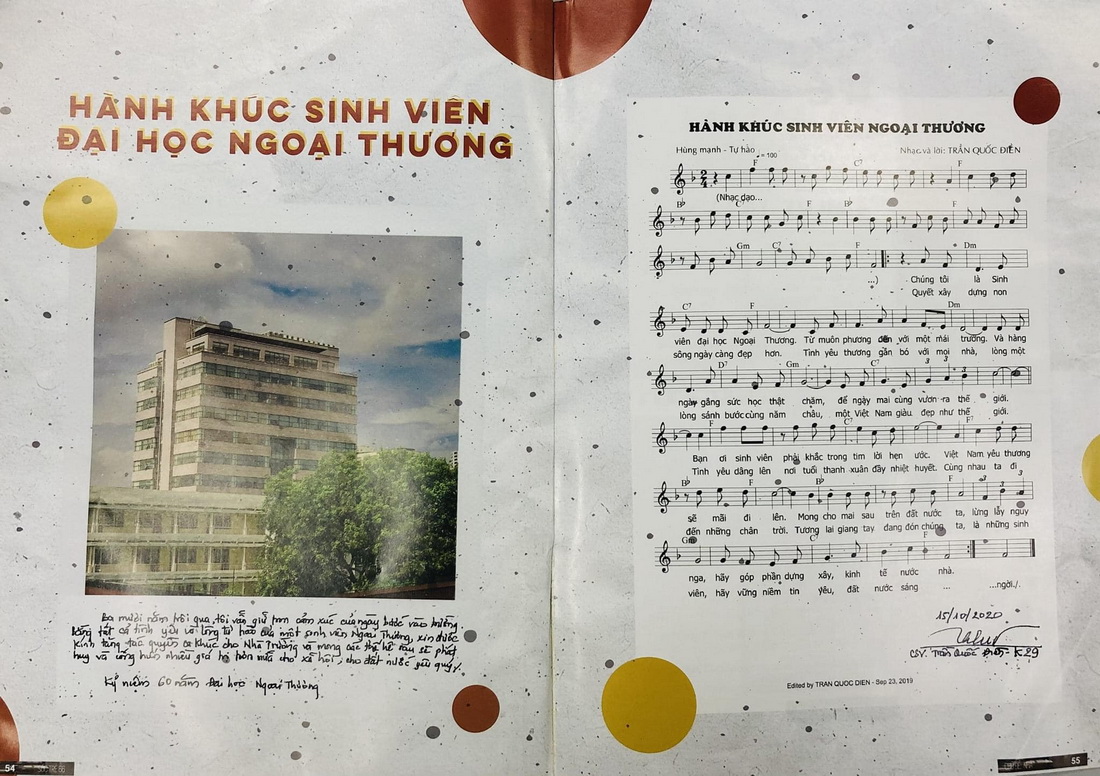 HÀNH KHÚC SINH VIÊN
ĐẠI HỌC NGOẠI THƯƠNG
Ba mươi năm trôi qua, tôi vẫn giữ trọn cảm xúc của ngày bước vào trường.
Bằng tất cả tình yêu và lòng tự hào của một sinh viên Ngoại Thương, xin được
kính tặng tác quyền ca khúc cho Nhà Trường và mong các thế hệ sau sẽ phát
huy và cống hiến nhiều giá trị hơn nữa cho xã hội, cho đất nước yêu quý.
Kỷ niệm 60 năm Đại học Ngoại Thương
54
HÀNH KHÚC SINH VIÊN NGOẠI THƯƠNG
Hùng mạnh - Tự hào
♩ = 100
Nhạc và lời: TRẦN QUỐC ĐIỀN
F C7 F
(Nhạc dạo...
B♭ C7 F B♭ F
Gm C7 F Dm
...) Chúng tôi là Sinh
Quyết xây dựng non
C7 F Dm
viên đại học Ngoại Thương. Từ muôn phương đến với một mái trường. Và hàng
sông ngày càng đẹp hơn. Tình yêu thương gắn bó với mọi nhà, lòng một
D7 Gm C7 3 3 F
ngày gắng sức học thật chăm, để ngày mai cùng vươn ra thế giới.
lòng sánh bước cùng năm châu, một Việt Nam giàu đẹp như thế giới.
F C7 F F7
Bạn ơi sinh viên phải khắc trong tim lời hẹn ước. Việt Nam yêu thương
Tình yêu dâng lên nơi tuổi thanh xuân đầy nhiệt huyết. Cùng nhau ta đi
B♭ F B♭ F 3 3
sẽ mãi đi lên. Mong cho mai sau trên đất nước ta, lừng lẫy nguy
đến những chân trời. Tương lai giang tay đang đón chúng ta, là những sinh
Gm C7 F
nga, hãy góp phần dựng xây, kinh tế nước nhà.
viên, hãy vững niềm tin yêu, đất nước sáng ... ...ngời./.
15/10/2020
CSV. Trần Quốc Điền - K29
Edited by TRAN QUOC DIEN - Sep 23, 2019
55